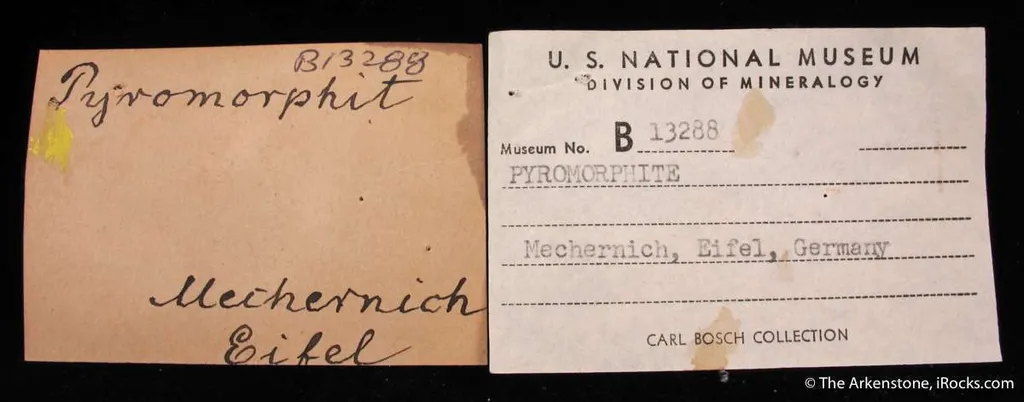 B13288
Pyromorphit
Mechernich
Eifel
U. S. NATIONAL MUSEUM
DIVISION OF MINERALOGY
Museum No. B 13288
PYROMORPHITE
Mechernich, Eifel, Germany
CARL BOSCH COLLECTION
© The Arkenstone, iRocks.com